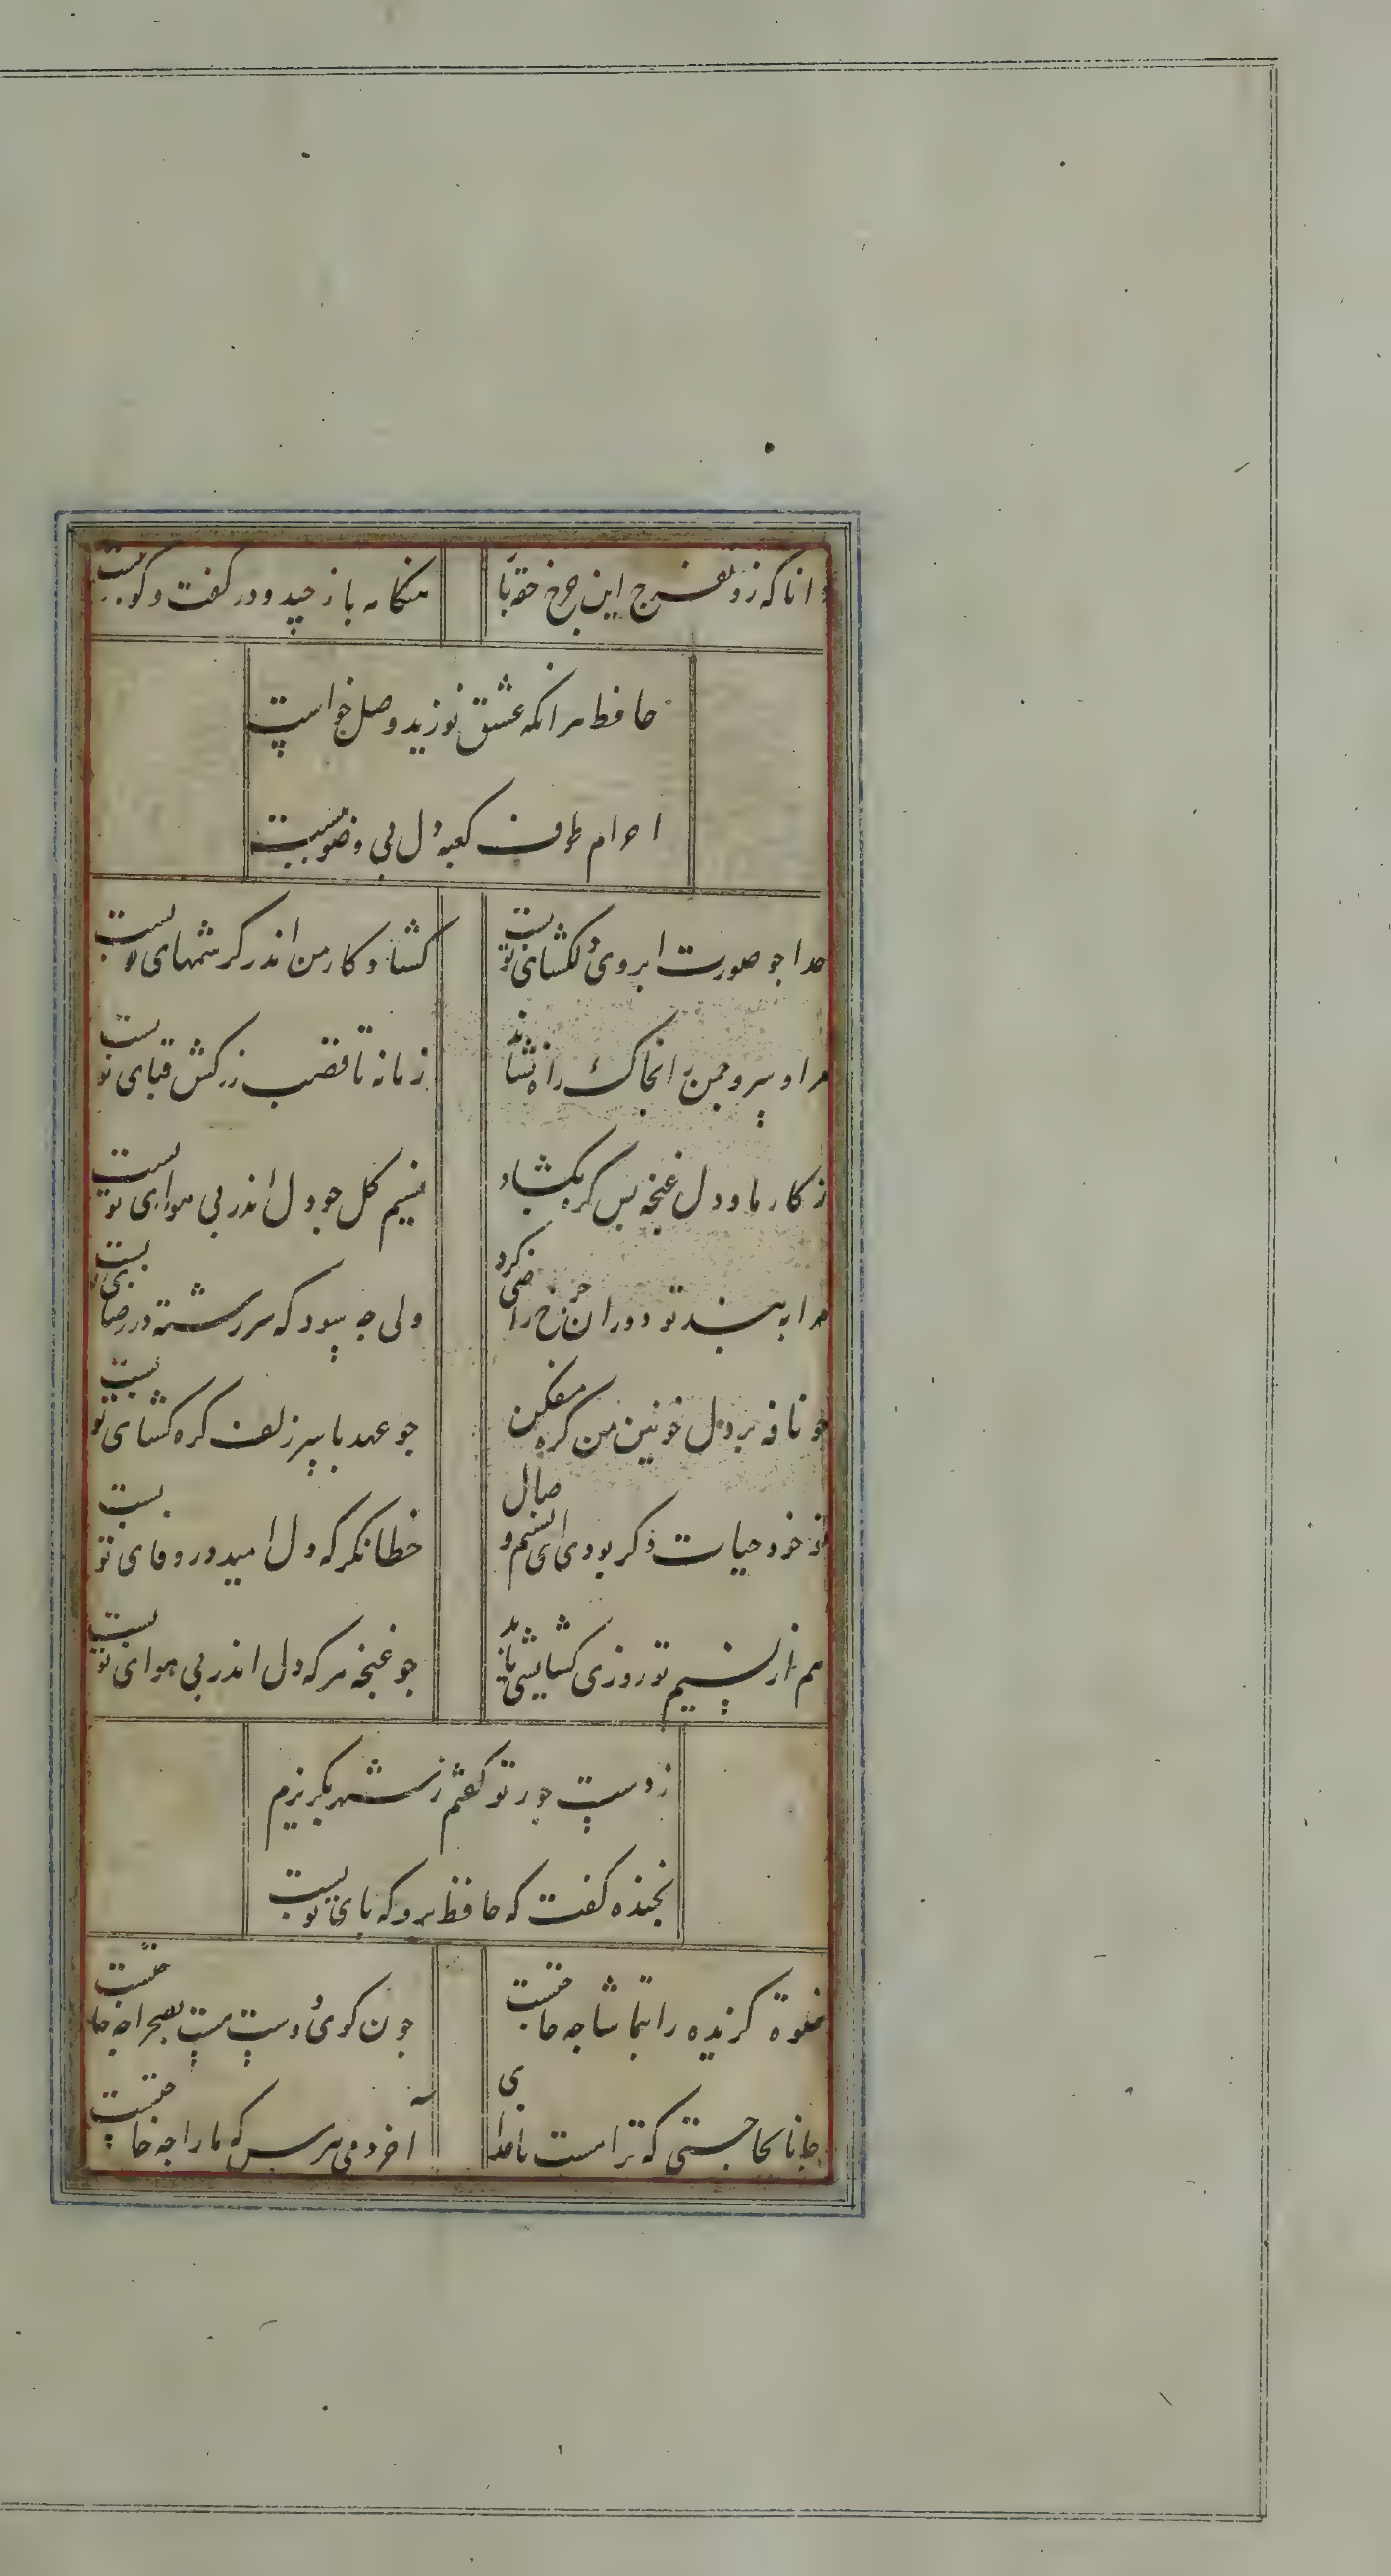 دانا که زد تفرج این چرخ حقه باز
هنکامه باز چید و در کفت و کو ببست
حافظ هر انکه عشق نورزید و وصل خواست
احرام طوف کعبه دل بی وضو ببست
خدا جو صورت ابروی دلکشای تو بست
کشاد کار من اندر کرشمهای تو بست
مرا و سرو چمن را بخاک راه نشاند
زمانه تا قصب زرکش قبای تو بست
ز کار ما و دل غنچه بس کره بکشاد
نسیم کل جو دل اندر پی هوای تو بست
مرا به بند تو دوران چرخ راضی کرد
ولی چه سود که سررشته در رضای تو بست
جو نافه بر دل خونین من کره مفکن
جو عهد با سر زلف کره کشای تو بست
تو خود حیات دکر بودی ای نسیم وصال
خطا نکر که دل امید در وفای تو بست
هم از نسیم تو روزی کشایشی یابد
جو غنچه هر که دل اندر پی هوای تو بست
ز دست جور تو کفتم ز شهر بکریزم
بخنده کفت که حافظ برو که پای تو بست
خلوة کزیده را بتماشا چه حاجتست
جون کوی دوست هست بصحرا چه حاجتست
جانا بحاجتی که ترا است با خدای
آخر دمی بپرس که ما را چه حاجتست